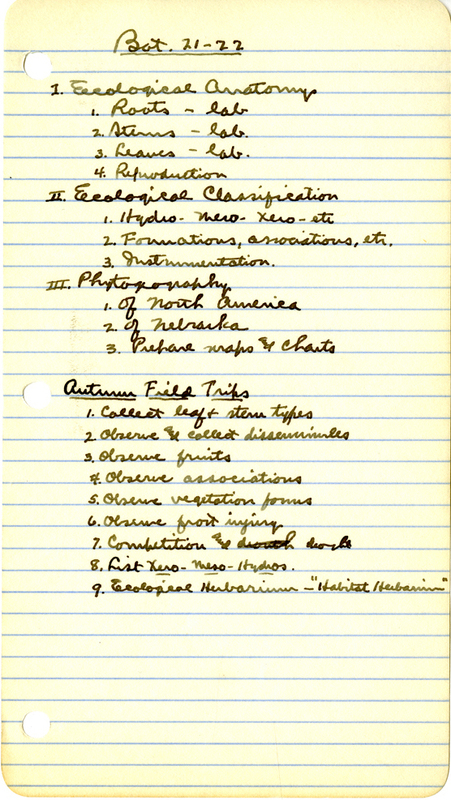 Bot. 21-22
I. Ecological Anatomy
1. Roots - lab
2. Stems - lab.
3. Leaves - lab.
4. Reproduction
II. Ecological Classification
1. Hydro- Meso- Xero- etc
2. Formations, associations, etc.
3. Instrumentation.
III. Phytogeography
1. Of North America
2. Of Nebraska
3. Prepare maps & Charts
Autumn Field Trips
1. Collect leaf & stem types
2. Observe & collect disseminules
3. Observe fruits
4. Observe associations
5. Observe vegetation forms
6. Observe frost injury
7. Competition &
8. List Xero- Meso- Hydros.
9. Ecological Herbarium - "Habitat Herbarium"